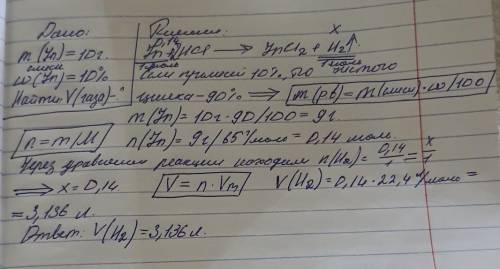 Дано:
m (Zn) = 10г.
смеси
ω(Zn) = 10%
Найти: V(газа)-?
Решение:
0,14 x
Zn + HCl → ZnCl₂ + H₂↑.
1 моль 1 моль
Если примесей 10%, то чистого
цинка - 90% ⟹ m(рв) = m(смеси)·ω/100
m(Zn) = 10г · 90/100 = 9г.
n = m/M n(Zn) = 9г/65г/моль = 0,14 моль.
Через уравнение реакции находим n(H₂) = 0,14/1 = x/1
⟹ x = 0,14. V = n · Vm V(H₂) = 0,14 · 22,4 л/моль =
= 3,136 л.
Ответ: V(H₂) = 3,136л.